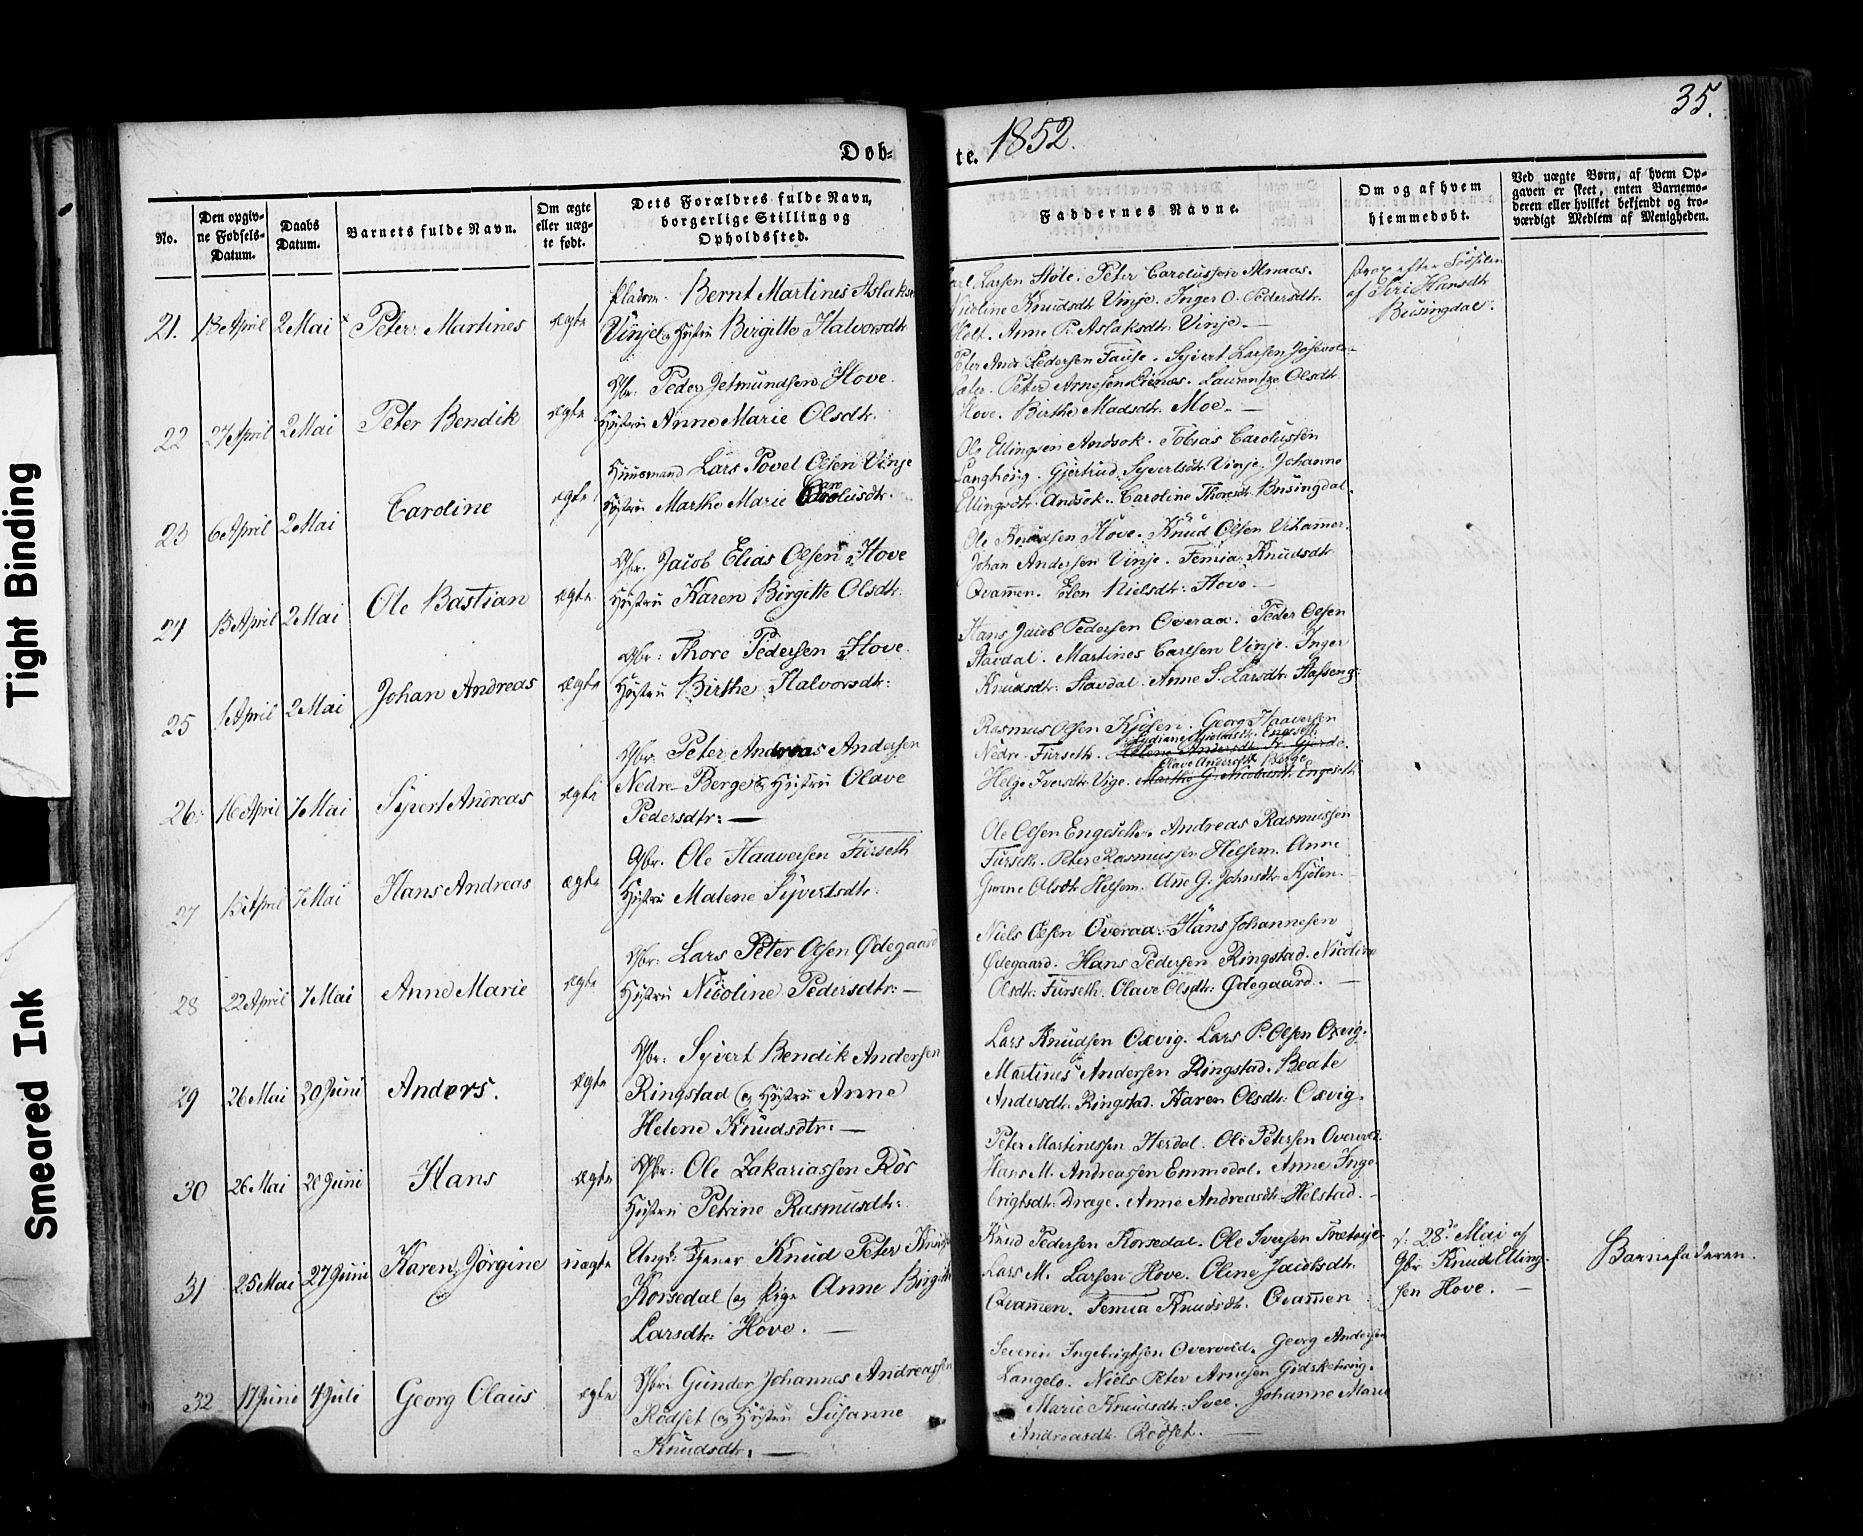 Tight Binding
Smeared Ink
Døb-
te. 1852.
35.
No.
Den opgiv-
ne Fødsels-
Datum.
Daabs
Datum.
Barnets fulde Navn.
Om ægte
eller uæg-
te født.
Dets Forældres fulde Navn,
borgerlige Stilling og
Opholdssted.
Faddernes Navne.
Om og af hvem
hjemmedøbt.
Ved uægte Børn, af hvem Op-
gaven er skeet, enten Barnemo-
deren eller hvilket bekjendt og tro-
værdigt Medlem af Menigheden.
21. 13 April 2 Mai Peter Martines ægte
Bernt Martines Aslaks
Vinje og Hustru Birgitte Halvorsdtr
Larsen Støle. Peter Carolussen Almaas.
Nicoline Knudsdtr Vinje. Inger O. Pedersdtr.
Holt. Anne P. Aslaksdtr. Vinje.
strax efter Fødselen
af Siri Hansdtr
Busingdal.
22 27 April 2 Mai Peter Bendik ægte
Gbr. Peder Jetmundsen Hove.
Hustru Anne Marie Olsdtr.
Peter Andr. Pedersen Fause. Syvert Larsen
sæter. Peter Arnesen Lienæs. Laurentze Olsdtr
Hove. Birthe Madsdtr. Moe.
23 6 April 2 Mai Caroline ægte
Huusmand Lars Povel Olsen Vinje
Hustru Marthe Marie Carolusdtr.
Ole Ellingsen Andsok. Tobias Carolussen
Langhøig. Gjertrud Syvertsdtr. Vinje. Johanne
Ellingsdtr. Andsok. Caroline Thoresdtr. Busingdal.
24 15 April 2 Mai Ole Bastian ægte
Gbr. Jacob Elias Olsen Hove
Hustru Karen Birgitte Olsdtr.
Ole Knudsen Hove. Knud Olsen Uthammer.
Johan Andersen Vinje. Temia Knudsdtr
Qvammen. Elen Nielsdtr: Hove
25 1 April 2 Mai Johan Andreas ægte
Gbr: Thore Pedersen Hove.
Hustru Birthe Halvorsdtr:
Hans Jacob Pedersen Overaa. Peder Olsen
Stavdal. Martines Carlsen Vinje. Inger
Knudsdtr: Stavdal. Anne S. Larsdtr:
26. 16 April 7 Mai Syvert Andreas ægte
Gbr: Peter Andreas Andersen
Nedre-Berge & Hustru Olave
Pedersdtr:
Rasmus Olsen Kjølsen. Georg Haaversen
Nedre-Furseth.
Olave Andersdtr Berge
Helje Iversdtr. Vige. Marthe G. Nicolaisdtr. Engeseth
27 15 April 7 Mai Hans Andreas ægte
Gbr. Ole Haaversen Furseth
Hustru Malene Syvertsdtr.
Ole Olsen Engeseth. Andreas Rasmussen
Furseth. Peter Rasmussen Helsem. Anne
Gurine Olsdtr Helsem. Ane G. Johnsdtr. Kjølen.
28 22 April 7 Mai Anne Marie ægte
Gbr: Lars Peter Olsen Ødegaard
Hustru Nicoline Pedersdtr:
Niels Olsen Overaa. Hans Johannesen
Ødegaard. Hans Pedersen Ringstad. Nicoline
Olsdtr: Furseth. Olave Olsdtr: Ødegaard.
29 26 Mai 20 Juni Anders. ægte
Gbr: Syvert Bendik Andersen
Ringstad (og Hustru Anne
Helene Knudsdtr:
Lars Knudsen Oxvig. Lars P. Olsen Oxvig.
Martines Andersen Ringstad. Beate
Andersdtr. Ringstad. Karen Olsdtr: Oxvig.
30 26 Mai 20 Juni Hans ægte
Gbr: Ole Zakariassen Rør
Hustru Petrine Rasmusdtr:
Peter Martinussen Herdal. Ole Petersen Overvold.
Hans M. Andreassen Emmedal. Anne Inge-
brigtsdtr: Drage. Anne Andreasdtr. Helstad.
31 25 Mai 27 Juni Karen Jørgine uægte
Ungk: Tjener Knud Peter Knuds
Korsedal (og Pige Anne Birgitte
Larsdtr: Hove.
Knud Pedersen Korsedal. Ole Iversen
Lars M. Larsen Hove. Oline Jacobsdtr.
Qvammen. Temia Knudsdtr. Qvammen
d: 28de Mai af
Gbr Knud Elling-
sen Hove.
Barnefaderen.
32 17 Juni 4 Juli Georg Olaus ægte
Gbr: Gunder Johannes Andreassen
Rødset (og Hustru Susanne
Knudsdtr:
Severin Ingebrigtsen Overvold. Georg Andersen
Langelo. Niels Peter Arnesen Gidskehoug.
Marie Knudsdtr: Svee. Johanne Marie
Andreasdtr. Rødset.